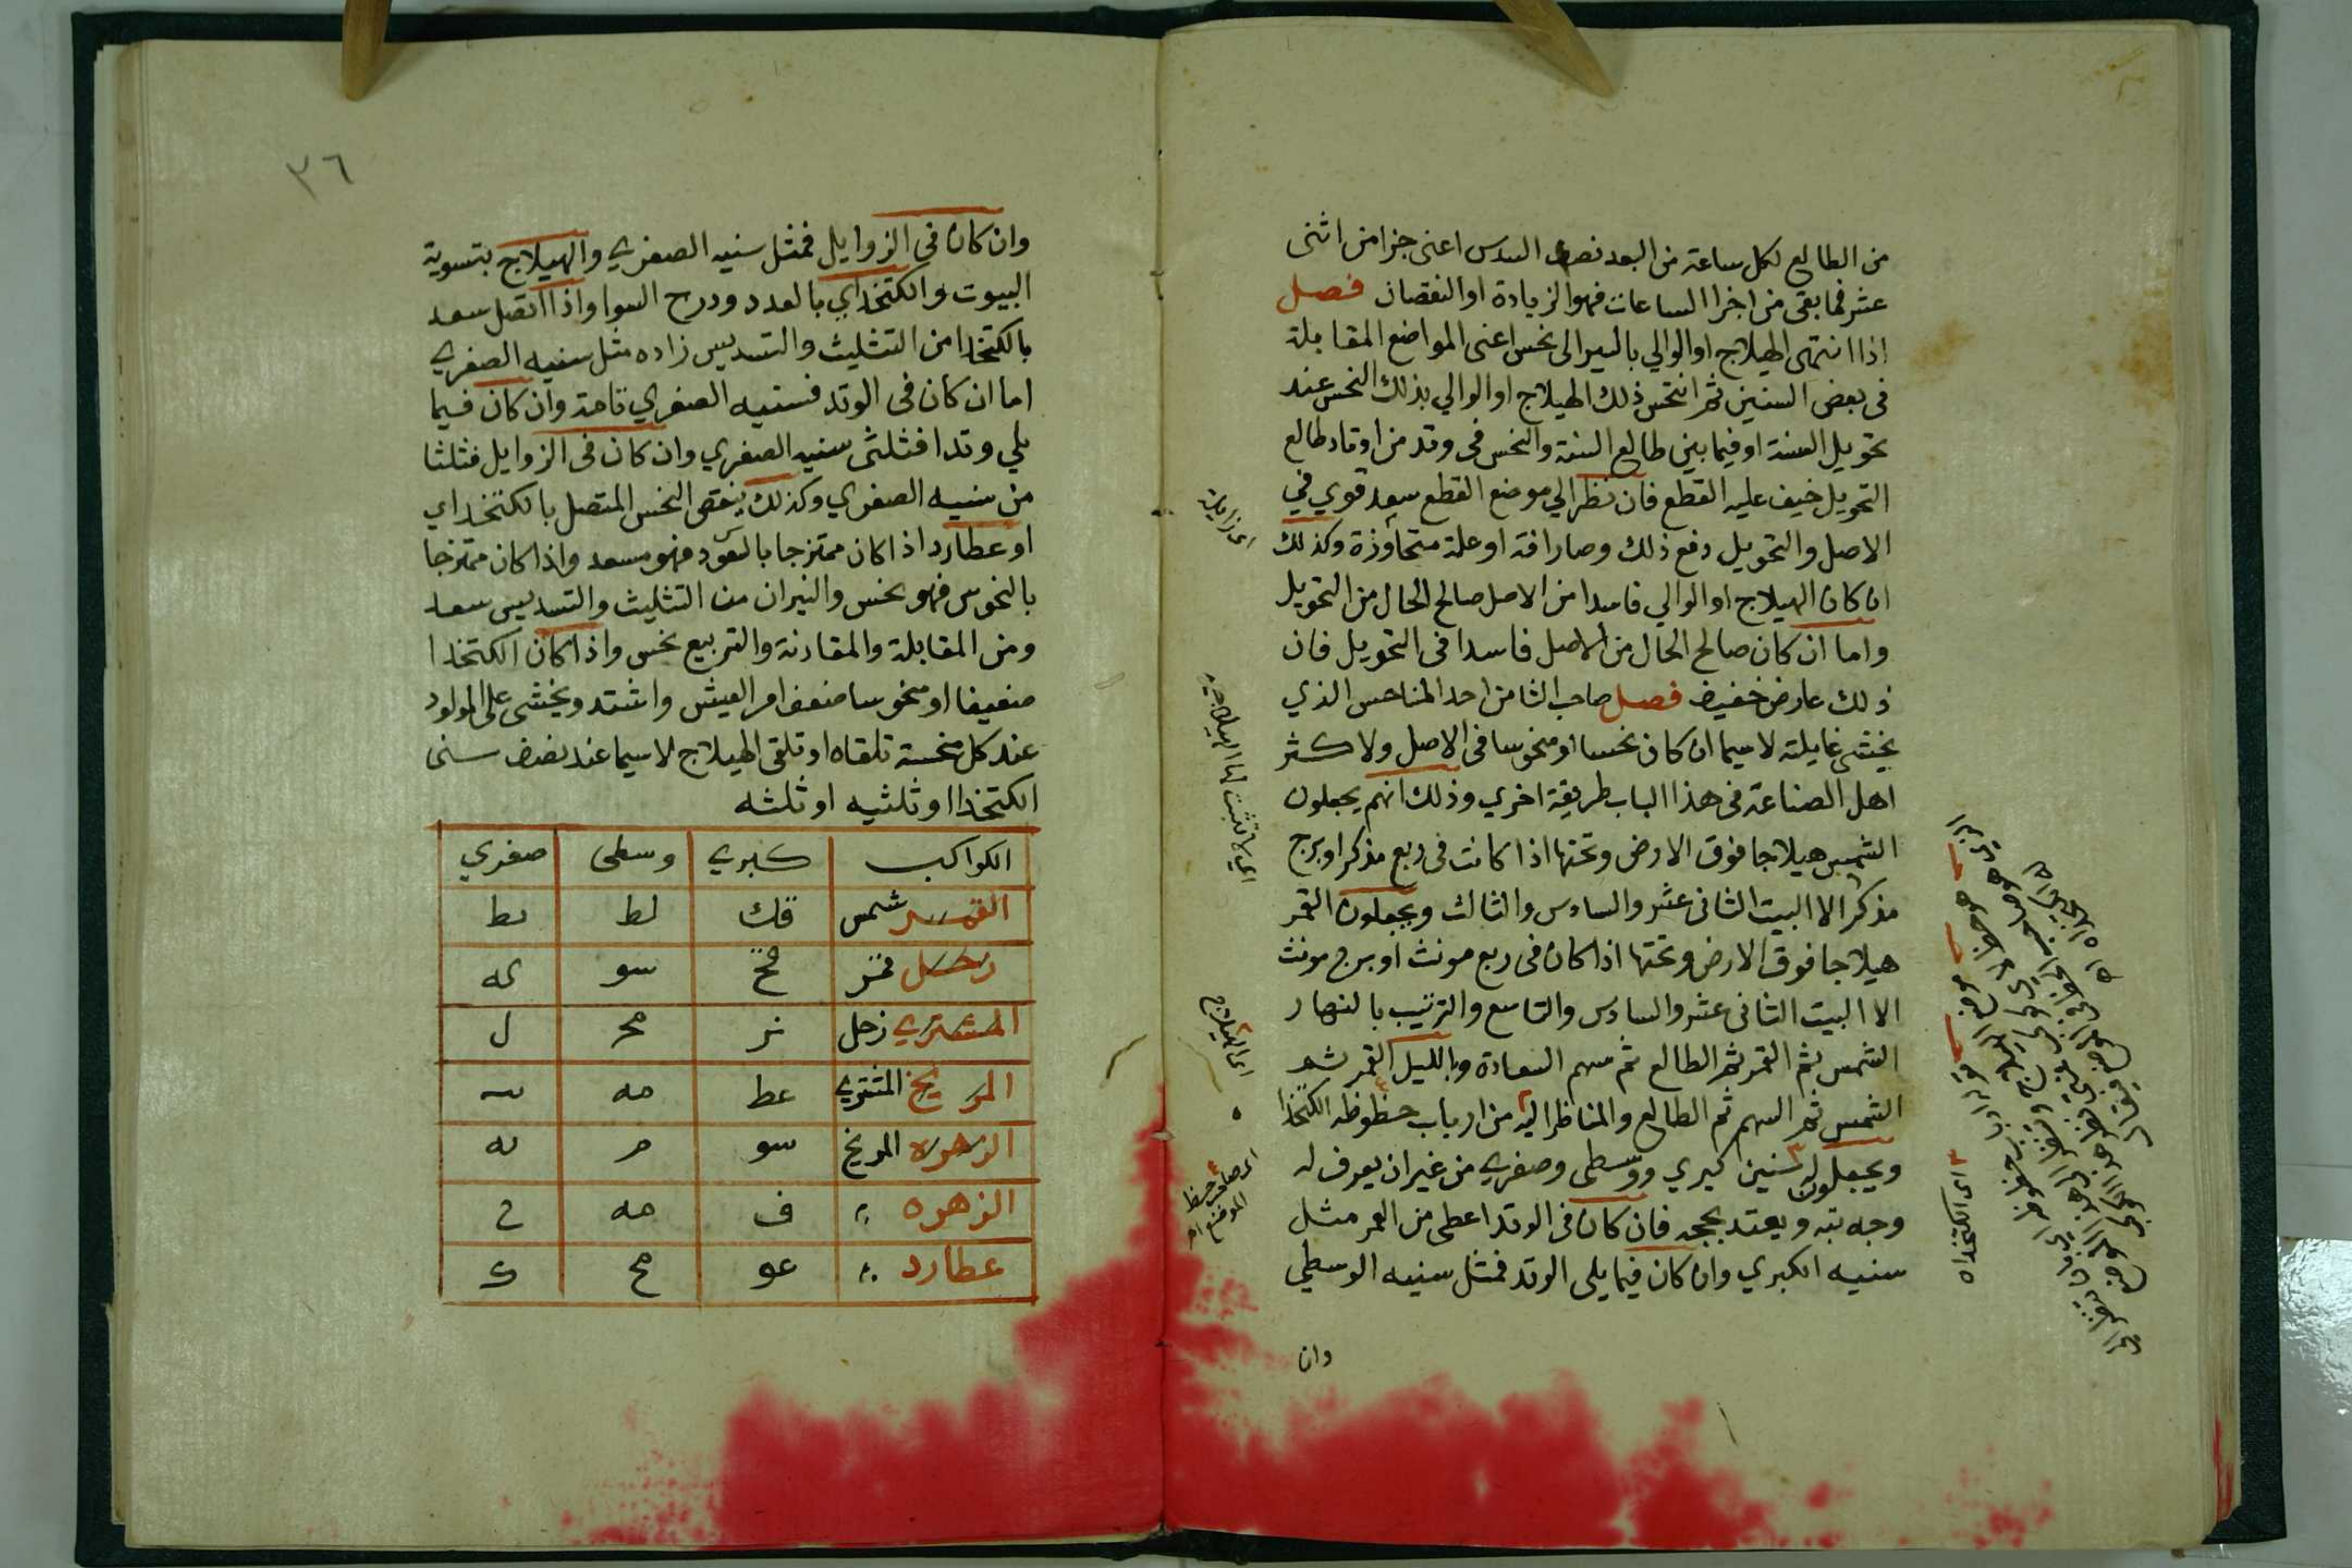 من الطالع لكل ساعة من البعد نصف السدس اعنى جزا من اثنى
عشر فما بقى من اجزا الساعات فهو الزيادة او النقصان فصل
اذا انتهى الهيلاج او الوالي بالسير الى نحس اعنى المواضع المقابلة
فى بعض السنين ثم انتحس ذلك الهيلاج او الوالي بذلك النحس عند
تحويل السنة او فيما بين طالع السنة والنحس فى وتد من اوتاد طالع
التحويل خيف عليه القطع فان نظر الي موضع القطع سعد قوي في
الاصل والتحويل دفع ذلك وصار افة او علة متجاوزة وكذلك
ان كان الهيلاج او الوالي فاسدا من الاصل صالح الحال من التحويل
واما ان كان صالح الحال من الاصل فاسدا فى التحويل فان
ذلك عارض خفيف فصل صاحب الثامن احد المناحس الذي
يخشى غايلته لاسيما ان كان نحسا او منحوسا فى الاصل ولاكثر
اهل الصناعة فى هذا الباب طريقة اخري وذلك انهم يجعلون
الشمس هيلاجا فوق الارض وتحتها اذا كانت فى ربع مذكر او برج
مذكر الا البيت الثانى عشر والسادس والثالث ويجعلون القمر
هيلاجا فوق الارض وتحتها اذا كان فى ربع مونث او برج مونث
الا البيت الثانى عشر والسادس والتاسع والترتيب بالنهار
الشمس ثم القمر ثم الطالع ثم سهم السعادة وبالليل القمر ثم
الشمس ثم السهم ثم الطالع والمناظر اليه من ارباب حظوظه الكتخدا
ويجعلون له سنين كبري ووسطى وصغرى من غير ان يعرف له
وجه بته ويعتد بحجه فان كان فى الوتد اعطى من العمر مثل
سنيه الكبري وان كان فيما يلى الوتد فمثل سنيه الوسطي
وان
اى زايلة
اى الهيلاج
اى صاحب حظ
الموضع
اى الكتخداه
٣٦
وان كان فى الزوايل فمثل سنيه الصغرى والهيلاج بتسوية
البيوت والكتخداي بالعدد ودرج السوا واذا اتصل سعد
بالكتخدا من التثليث والتسديس زاده مثل سنيه الصغرى
اما ان كان فى الوتد فسنيه الصغري تامة وان كان فيما
يلي وتدا فثلثى سنيه الصغري وان كان فى الزوايل فثلثا
من سنيه الصغري وكذلك ينقص النحس المتصل بالكتخداي
او عطارد اذا كان ممتزجا بالسعود فهو مسعد واذا كان ممتزجا
بالنحوس فهو نحس والنيران من التثليث والتسديس سعد
ومن المقابلة والمقارنة والتربيع نحس واذا كان الكتخدا
ضعيفا او منحوسا ضعف امر العيش واشتد ويخشى على المولود
عند كل منحسة تلقاه او تلقى الهيلاج لاسيما عند نصف سنى
الكتخدا او ثلثيه او ثلثه
الكواكب كبرى وسطى صغري
القمر شمس قك لط يط
زحل قمر قح سو كه
المشتري زحل نز مح ل
المريخ المشتري عط مه يب
الزهرة المريخ سو م يه
الزهره ف مه ح
عطارد عو مح ك